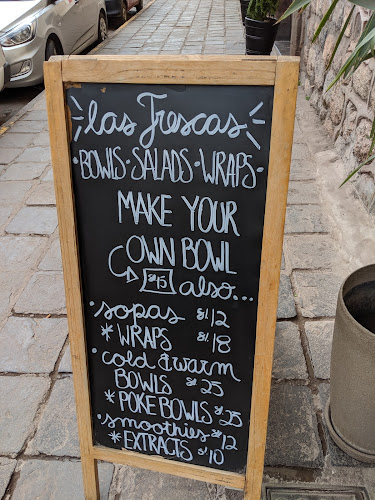 las Frescas
BOWLS · SALADS · WRAPS ·
MAKE YOUR
OWN BOWL
S/15 also...
· sopas S/. 12
* WRAPS S/. 18
· cold & warm
BOWLS S/ 25
* POKE BOWLS S/ 25
· smoothies S/ 12
* EXTRACTS S/ 10